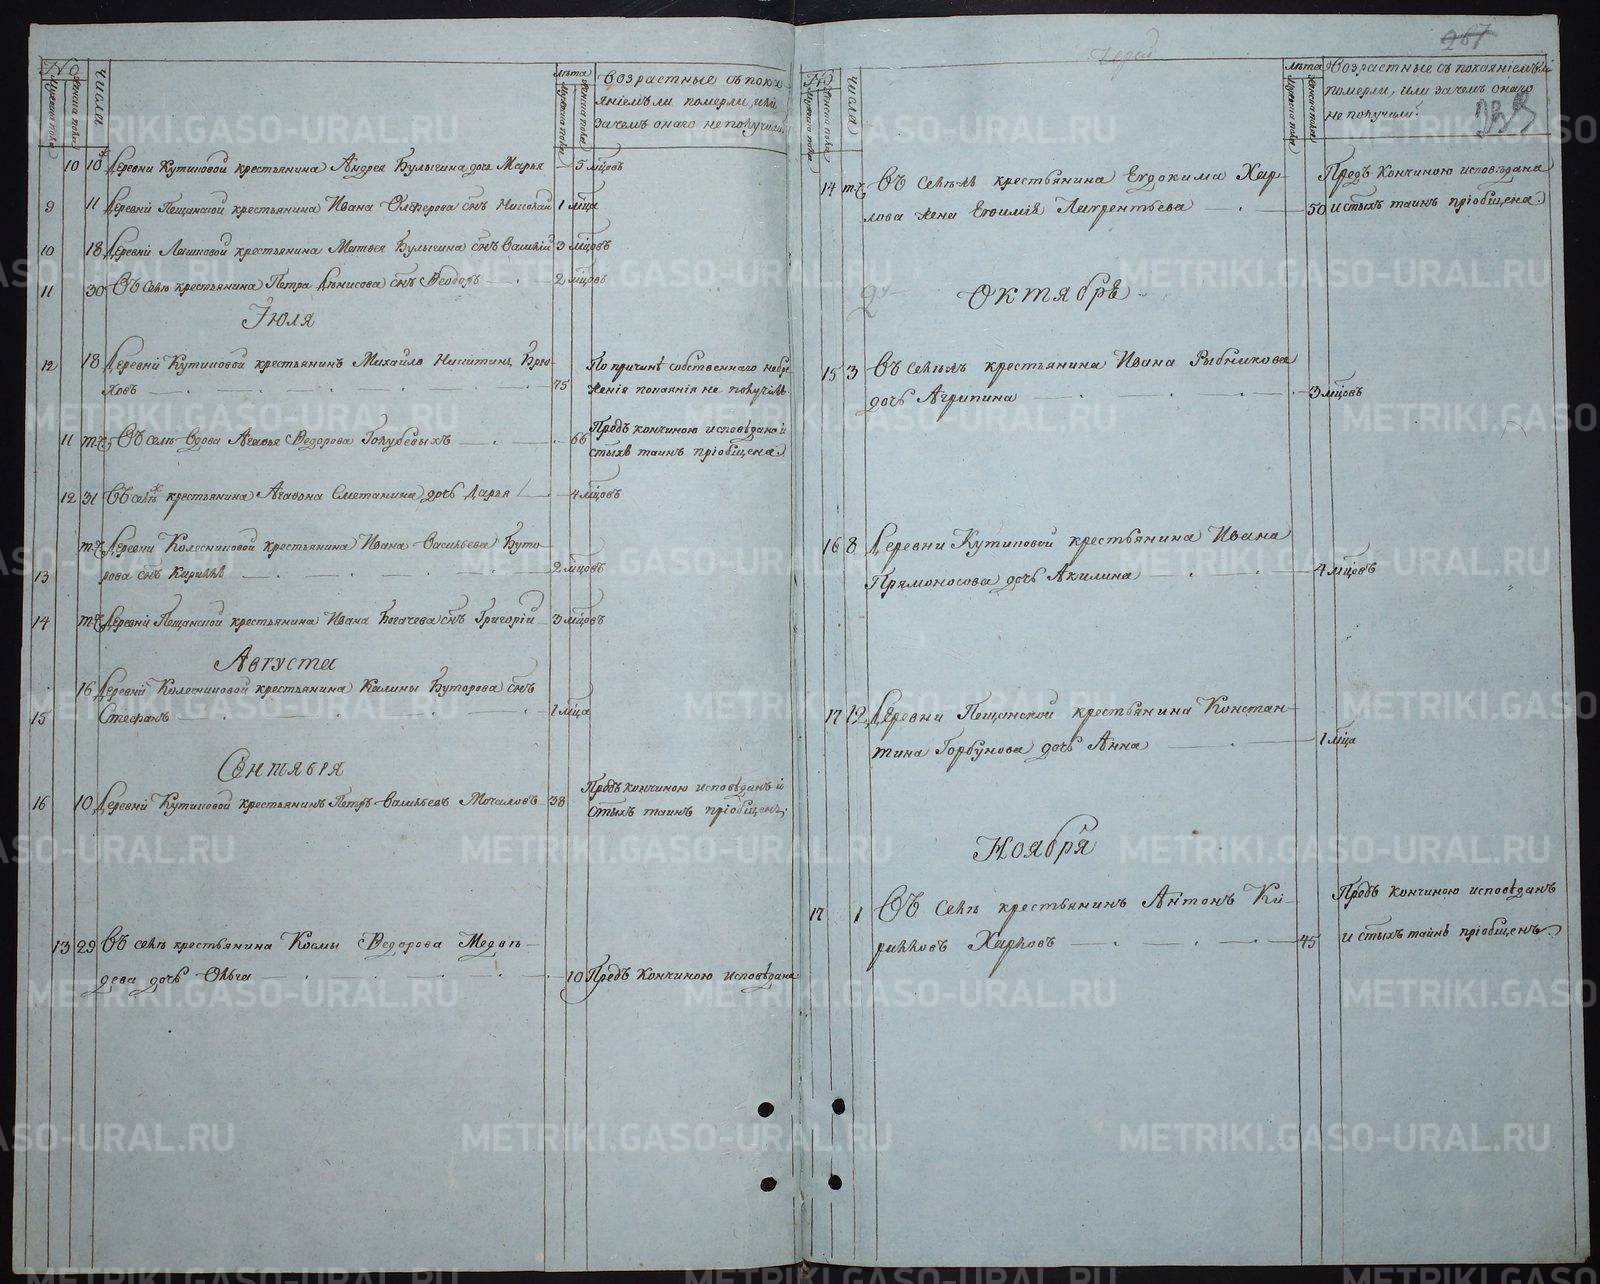 №
Мужеска полу
Женска полу
числа
лѣта
Мужеска полу
Женска полу
Возрастные съ пока-
яніемъ ли померли, или
зачемъ онаго не получили
10 10 Деревни Кутиковой крестьянина Андрея Булыгина дочь Марья 5 мцовъ
9 11 Деревни Пещанской крестьянина Ивана Олферова снъ Николай 1 мца
10 18 Деревни крестьянина Матвея Булыгина снъ Василій 3 мцовъ
11 30 Въ селѣ крестьянина Петра Денисова снъ Ѳеодоръ 2 мцовъ
Іюля
12 18 Деревни Кутиковой крестьянинъ Михайло Никитинъ Брю-
ховъ 75
По причинѣ собственнаго небре-
женія покаянія не получилъ
11 т.ч. Въ селѣ вдова Агафья Ѳедорова Голубевыхъ 66
Предъ кончиною исповѣдана и
стыхъ таинъ пріобщена
12 31 Въ селѣ крестьянина Агафона Сметанина дочь Дарья 4 мцовъ
т.ч. Деревни Колесниковой крестьянина Ивана Васильева Буто-
13 рова снъ Кириллъ 2 мцовъ
14 т.ч. Деревни Пещанской крестьянина Ивана Богачева снъ Григорій 3 мцовъ
Августа
16 Деревни Колесниковой крестьянина Калины Буторова снъ
15 Стефанъ 1 мца
Сентября
16 10 Деревни Кутиковой крестьянинъ Петръ Васильевъ Мочаловъ 38
Предъ кончиною исповѣданъ и
стыхъ таинъ пріобщенъ
13 29 Въ селѣ крестьянина Космы Ѳедорова Медвѣ-
дева дочь Ольга 10 Предъ кончиною исповѣдана
267
№
Мужеска полу
Женска полу
числа
лѣта
Мужеска полу
Женска полу
Возрастные съ покаяніемъ ли
померли, или зачемъ онаго
не получили
14 т.ч. Въ селѣ крестьянина Евдокима Хар-
лова жена Евфимія Лаврентьева 50
Предъ кончиною исповѣдана
и стыхъ таинъ пріобщена
Октябрь
15 3 Въ селѣ крестьянина Ивана Рыбникова
дочь Агрипина 3 мцовъ
16 8 Деревни Кутиковой крестьянина Ивана
Прямоносова дочь Акилина 4 мцовъ
17 12 Деревни Пещанской крестьянина Констан-
тина Горбунова дочь Анна 1 мца
Ноября
17 1 Въ селѣ крестьянинъ Антонъ Ки-
рилловъ Харловъ 45
Предъ кончиною исповѣданъ
и стыхъ таинъ пріобщенъ
METRIKI.GASO-URAL.RU